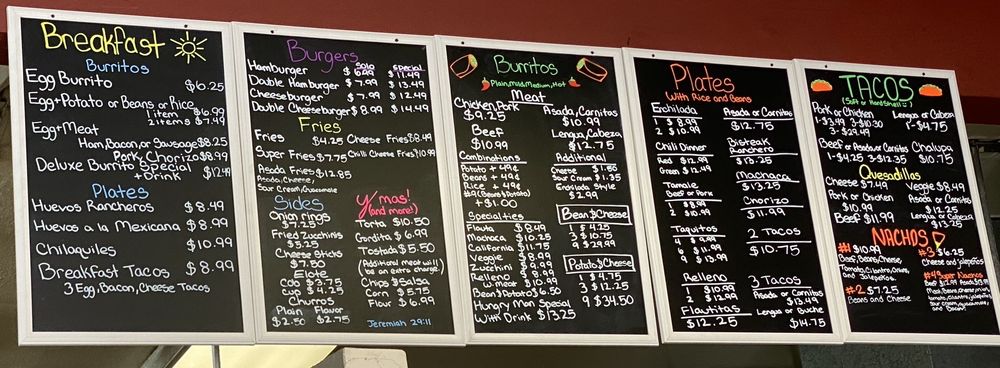 Breakfast
Burritos
Egg Burrito $6.25
Egg+Potato or Beans or Rice
1 item $6.99
2 items $7.49
Egg+Meat
Ham, Bacon, or Sausage $8.25
Pork, Chorizo $8.99
Deluxe Burrito Special
+ Drink $12.49
Plates
Huevos Rancheros $8.49
Huevos a la Mexicana $8.99
Chilaquiles $10.99
Breakfast Tacos $8.99
3 Egg, Bacon, Cheese Tacos
Burgers
Solo Special
Hamburger $6.99 $11.49
Double Hamburger $7.99 $13.49
Cheeseburger $7.99 $12.49
Double Cheeseburger $8.99 $14.49
Fries
Fries $4.25 Cheese Fries $8.49
Super Fries $7.75 Chili Cheese Fries $10.99
Asada Fries $12.85
Asada, Cheese,
Sour Cream, Guacamole
Sides
Onion rings
$7.25
Fried Zucchinis
$5.25
Cheese Sticks
$7.50
Elote
Cob $3.75
Cup $4.25
Churros
Plain Flavor
$2.50 $2.75
Y mas!
(and more!)
Torta $10.50
Gordita $6.99
Tostada $5.50
(Additional meat will
be an extra charge)
Chips & Salsa
Corn $5.75
Flour $6.99
Jeremiah 29:11
Burritos
Plain, Mild, Medium, Hot
Meat
Chicken, Pork
$9.25
Asada, Carnitas
$10.99
Beef
$10.99
Lengua, Cabeza
$12.75
Combinations
Potato + 49¢
Beans + 49¢
Rice + 49¢
#9 (Beans & Potato)
+ $1.00
Additional
Cheese $1.50
Sour Cream $1.35
Enchilada Style
$2.99
Specialties
Flauta $8.49
Machaca $10.25
California $11.75
Veggie $8.99
Zucchini $8.99
Relleno $8.99
w meat $10.99
Bean & Potato $6.50
Hungry Man Special
With Drink $13.25
Bean & Cheese
1 $4.25
3 $10.75
9 $29.99
Potato & Cheese
1 $4.75
3 $12.25
9 $34.50
Plates
With Rice and Beans
Enchilada
1 $8.99
2 $10.99
Chili Dinner
Red $12.99
Green $12.49
Tamale
Beef or Pork
1 $8.99
2 $10.99
Taquitos
4 $9.99
6 $11.99
9 $13.99
Relleno
1 $10.99
2 $12.99
Flautitas
$12.25
Asada or Carnitas
$12.75
Bisteak
Ranchero
$13.25
Machaca
$13.25
Chorizo
$11.99
2 Tacos
$10.75
3 Tacos
Asada or Carnitas
$13.49
Lengua or Buche
$14.75
TACOS
(Soft or Hard Shell :)
Pork or Chicken
1-$3.99 3-$10.30
$29.49
Lengua or Cabeza
1-$4.75
Beef or Asada or Carnitas
1-$4.25 3-$12.35
Chalupa
$10.75
Quesadillas
Cheese $7.49
Pork or Chicken
$10.99
Beef $11.99
Veggie $8.49
Asada or Carnitas
$12.25
Lengua or Cabeza
$13.25
NACHOS
#1 $10.99
Beef, Beans, Cheese,
Tomato, Cilantro, Onions,
and Jalapeños
#2 $7.25
Beans and Cheese
#3 $6.25
Cheese and jalapeños
#4 Super Nachos
Beef $12.99
Meat, Beans, Cheese,
tomato, cilantro, jalapeño,
sour cream,